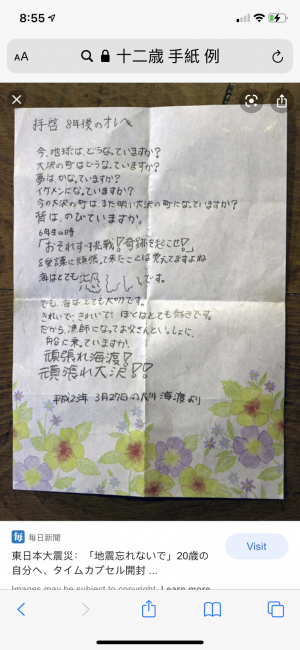 8:55
AA
十二歳 手紙 例
拝啓 8年後のオレへ
今、地球は、どうなっていますか?
大沢の町はどうなっていますか?
夢は、かなっていますか?
イケメンになっていますか?
今の大沢の町は、また明い大沢の町になっていますか?
背は、のびていますか。
6年生の時
「おそれず挑戦!奇跡を起こせ!」
を
に頑張って来たことは覚えてますよね
海はとても恐しいです。
でも、海は、とても大切です。
きれいで、きれいで、ぼくはとても好きです。
だから、漁師になってお父さんといっしょに、
船に乗っていますか。
頑張れ海渡!
頑張れ大沢!!
平成23年 3月27日の 海渡より
毎
毎日新聞
東日本大震災: 「地震忘れないで」20歳の
自分へ、タイムカプセル開封 ...
Visit
Images may be subject to copyright. Learn more